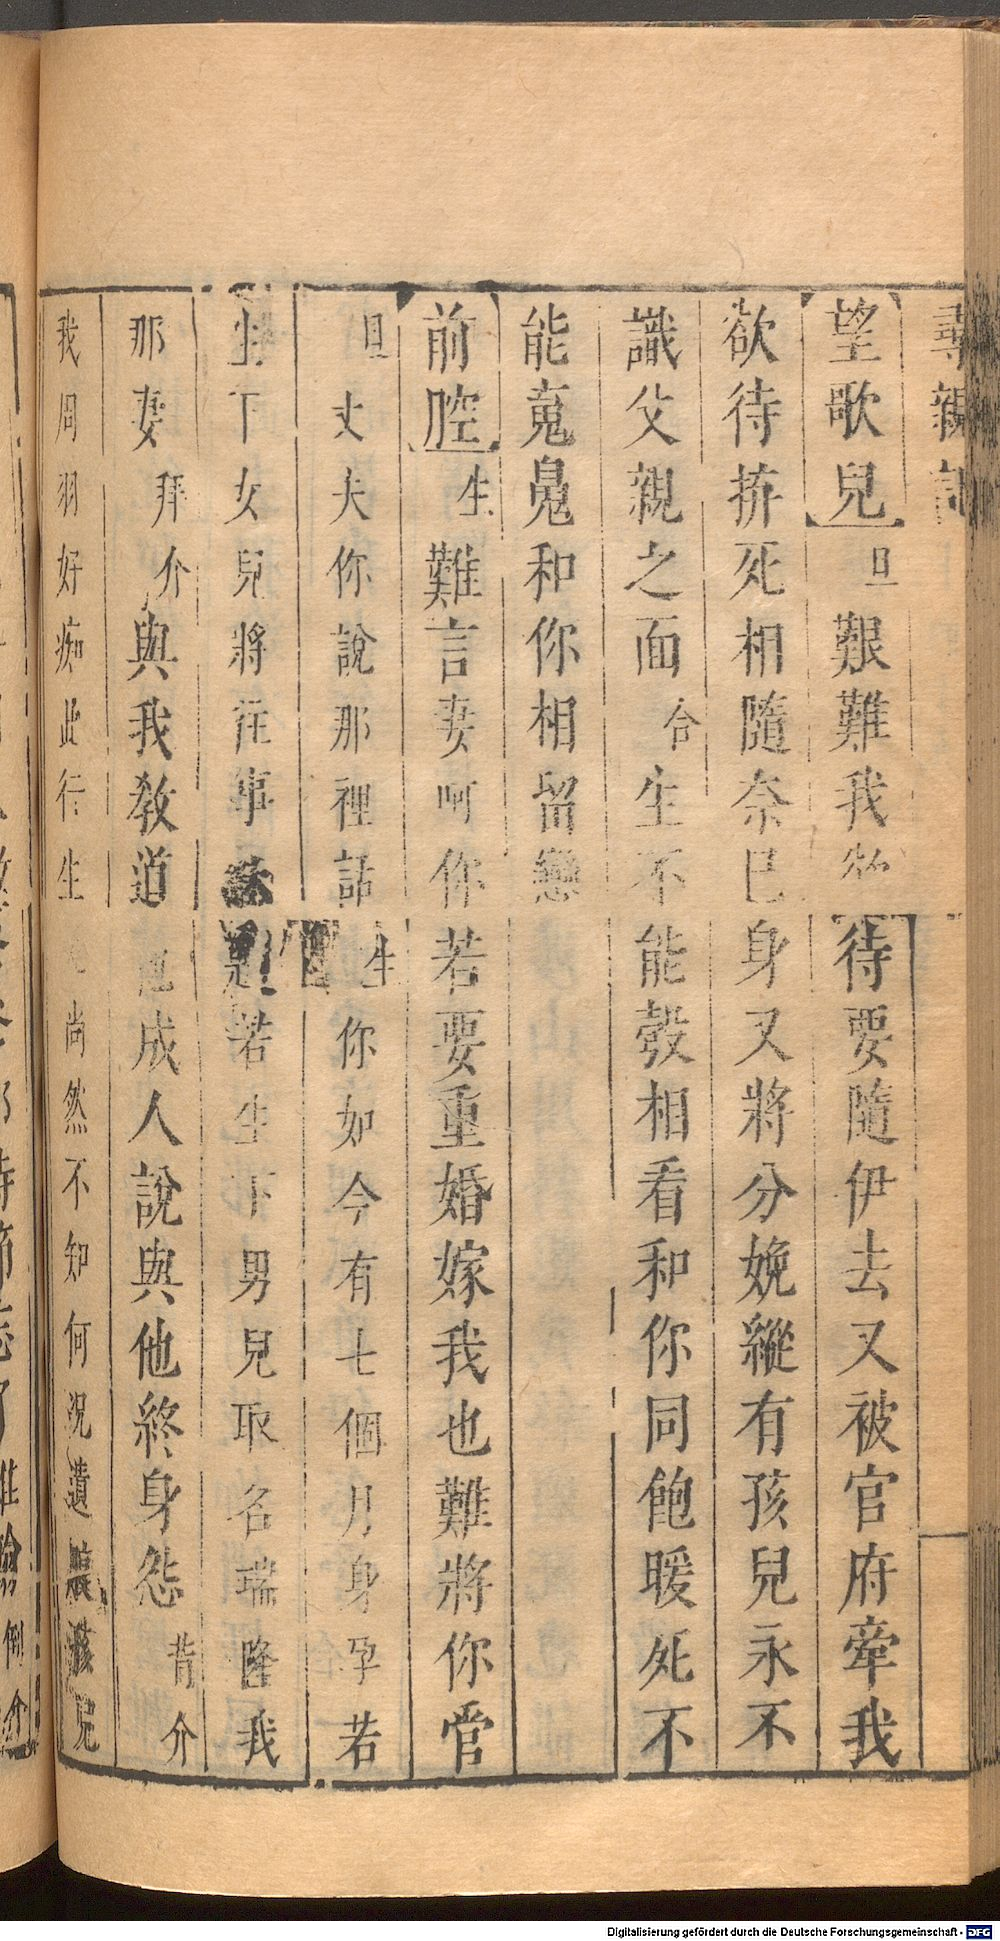 尋親記
望歌兒旦艱難我欲待要隨伊去又被官府牽我
欲待拚死相隨奈巳身又將分娩縱有孩兒永不
識父親之面合生不能彀相看和你同飽暖死不
能蒐鬼和你相留戀
前腔生難言妻呵你若要重婚嫁我也難將你管
旦丈夫你說那裡話生你如今有七個月身孕若
生下女兒將往事若生下男兒取名瑞隆我
那妻拜介與我教道成人說與他終身怨背介
我周羽好痴此行生尚然不知何況遺孩兒
Digitalisierung gefördert durch die Deutsche Forschungsgemeinschaft - DFG